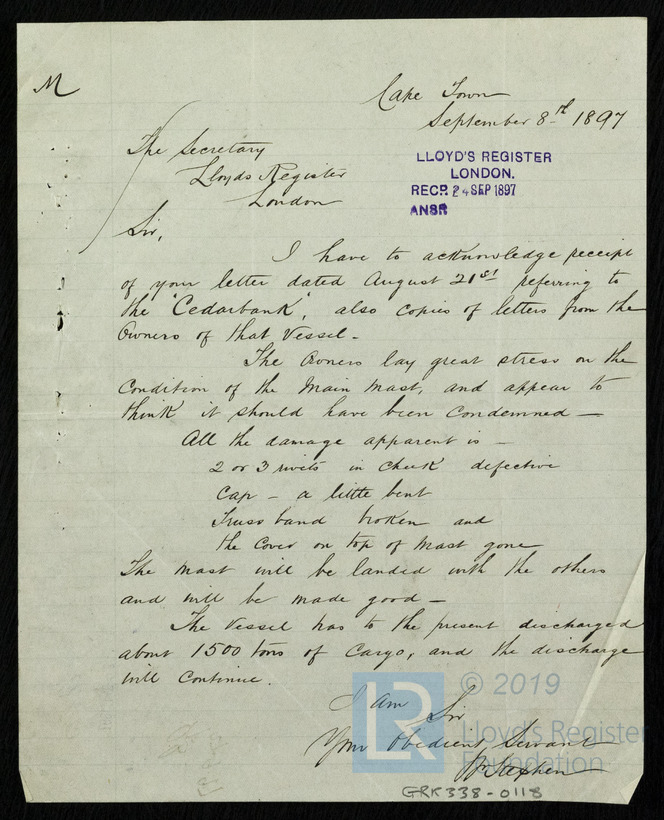 M
Cape Town
September 8th 1897
The Secretary
Lloyds Register
London
LLOYD'S REGISTER
LONDON.
RECD. 24 SEP 1897
ANSR
Sir,
I have to acknowledge receipt
of your letter dated August 21st referring to
the 'Cedarbank', also copies of letters from the
Owners of that Vessel -
The Owners lay great stress on the
Condition of the Main Mast, and appear to
think it should have been Condemned -
All the damage apparent is -
2 or 3 rivets in cheek defective
Cap - a little bent
Truss band broken and
the Cover on top of Mast gone
The Mast will be landed with the others
and will be made good -
The Vessel has to the present discharged
about 1500 tons of Cargo, and the discharge
will Continue.
I am Sir
Your Obedient Servant
Wm Stephen
© 2019
LR
Lloyd's Register
Foundation
GRK338-0118